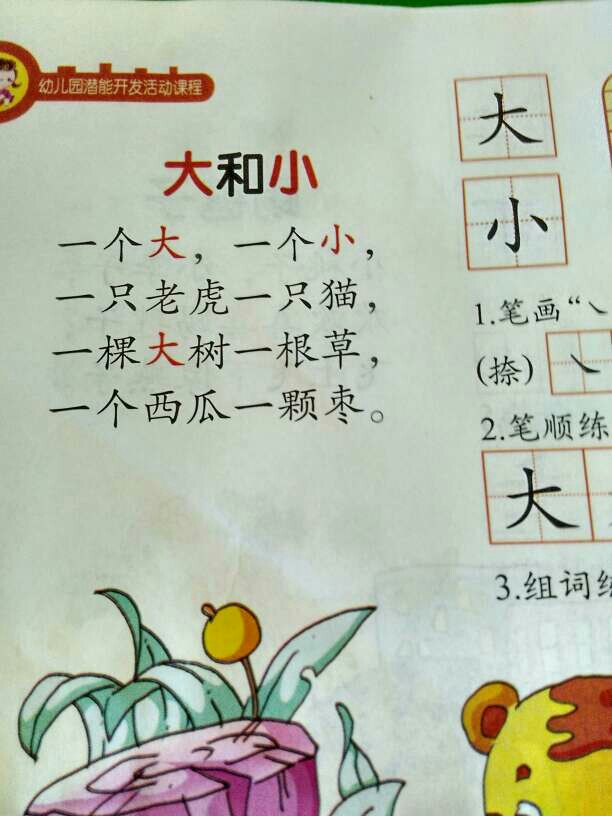 幼儿园潜能开发活动课程
大和小
一个大，一个小，
一只老虎一只猫，
一棵大树一根草，
一个西瓜一颗枣。
大
小
1.笔画“㇏
(捺)
㇏
2.笔顺练
大
3.组词练